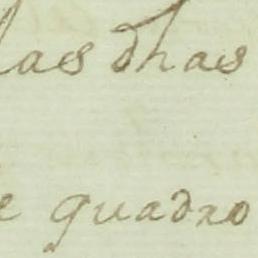 las dhas
e quadro